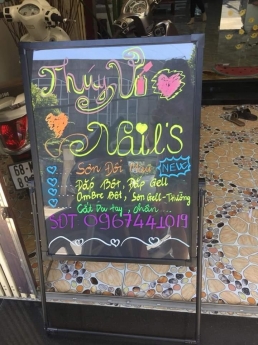 Thúy Vi
Nail'S
Sơn Đổi Màu NEW
Đắp Bột, Đắp Gell
Ombre Bột, Sơn Gell - Thường
Cắt Da tay, chân...
SĐT 0967441019
68